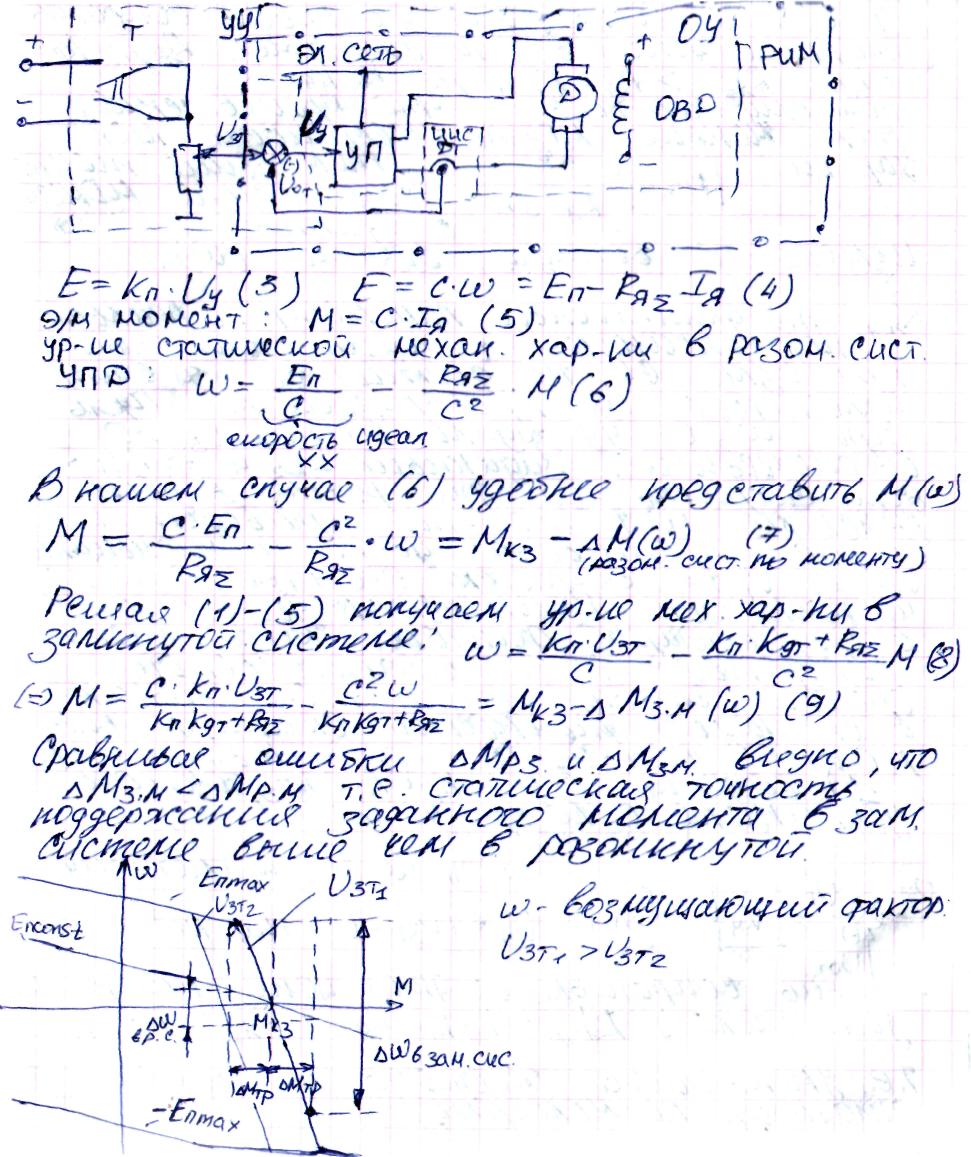 Т УУ ОУ РИМ
+ эл. сеть +
П Д ОВД
Uзт Uу УП ДТ
− (-) Uот −
E = Kп·Uу (3) E = C·ω = Eп − RяΣ Iя (4)
э/м момент: M = C·Iя (5)
ур-ие статической механ. хар-ки в разом. сист.
УПД: ω = Eп/C − RяΣ/C² · M (6)
скорость идеал
XX
В нашем случае (6) удобнее представить M(ω)
M = C·Eп/RяΣ − C²/RяΣ · ω = Mкз − ΔM(ω) (7)
(разом. сист. по моменту)
Решая (1)-(5) получаем ур-ие мех. хар-ки в
замкнутой системе: ω = Kп·Uзт/C − (Kп·Kдт + RяΣ)/C² M (8)
(=) M = C·Kп·Uзт/(KпKдт+RяΣ) − C²ω/(KпKдт+RяΣ) = Mкз − ΔMз.м (ω) (9)
Сравнивая ошибки ΔMрз. и ΔMзм. видно, что
ΔMз.м < ΔMр.м т.е. статическая точность
поддержания заданного момента в зам.
системе выше чем в разомкнутой.
ω
Eпmax Uзт1
Uзт2
ω - возмущающий фактор.
Eпconst
Uзт1 > Uзт2
M
Δω
в р.с.
Mкз
Δω в зам. сис.
ΔMтр ΔMтр
−Eпmax